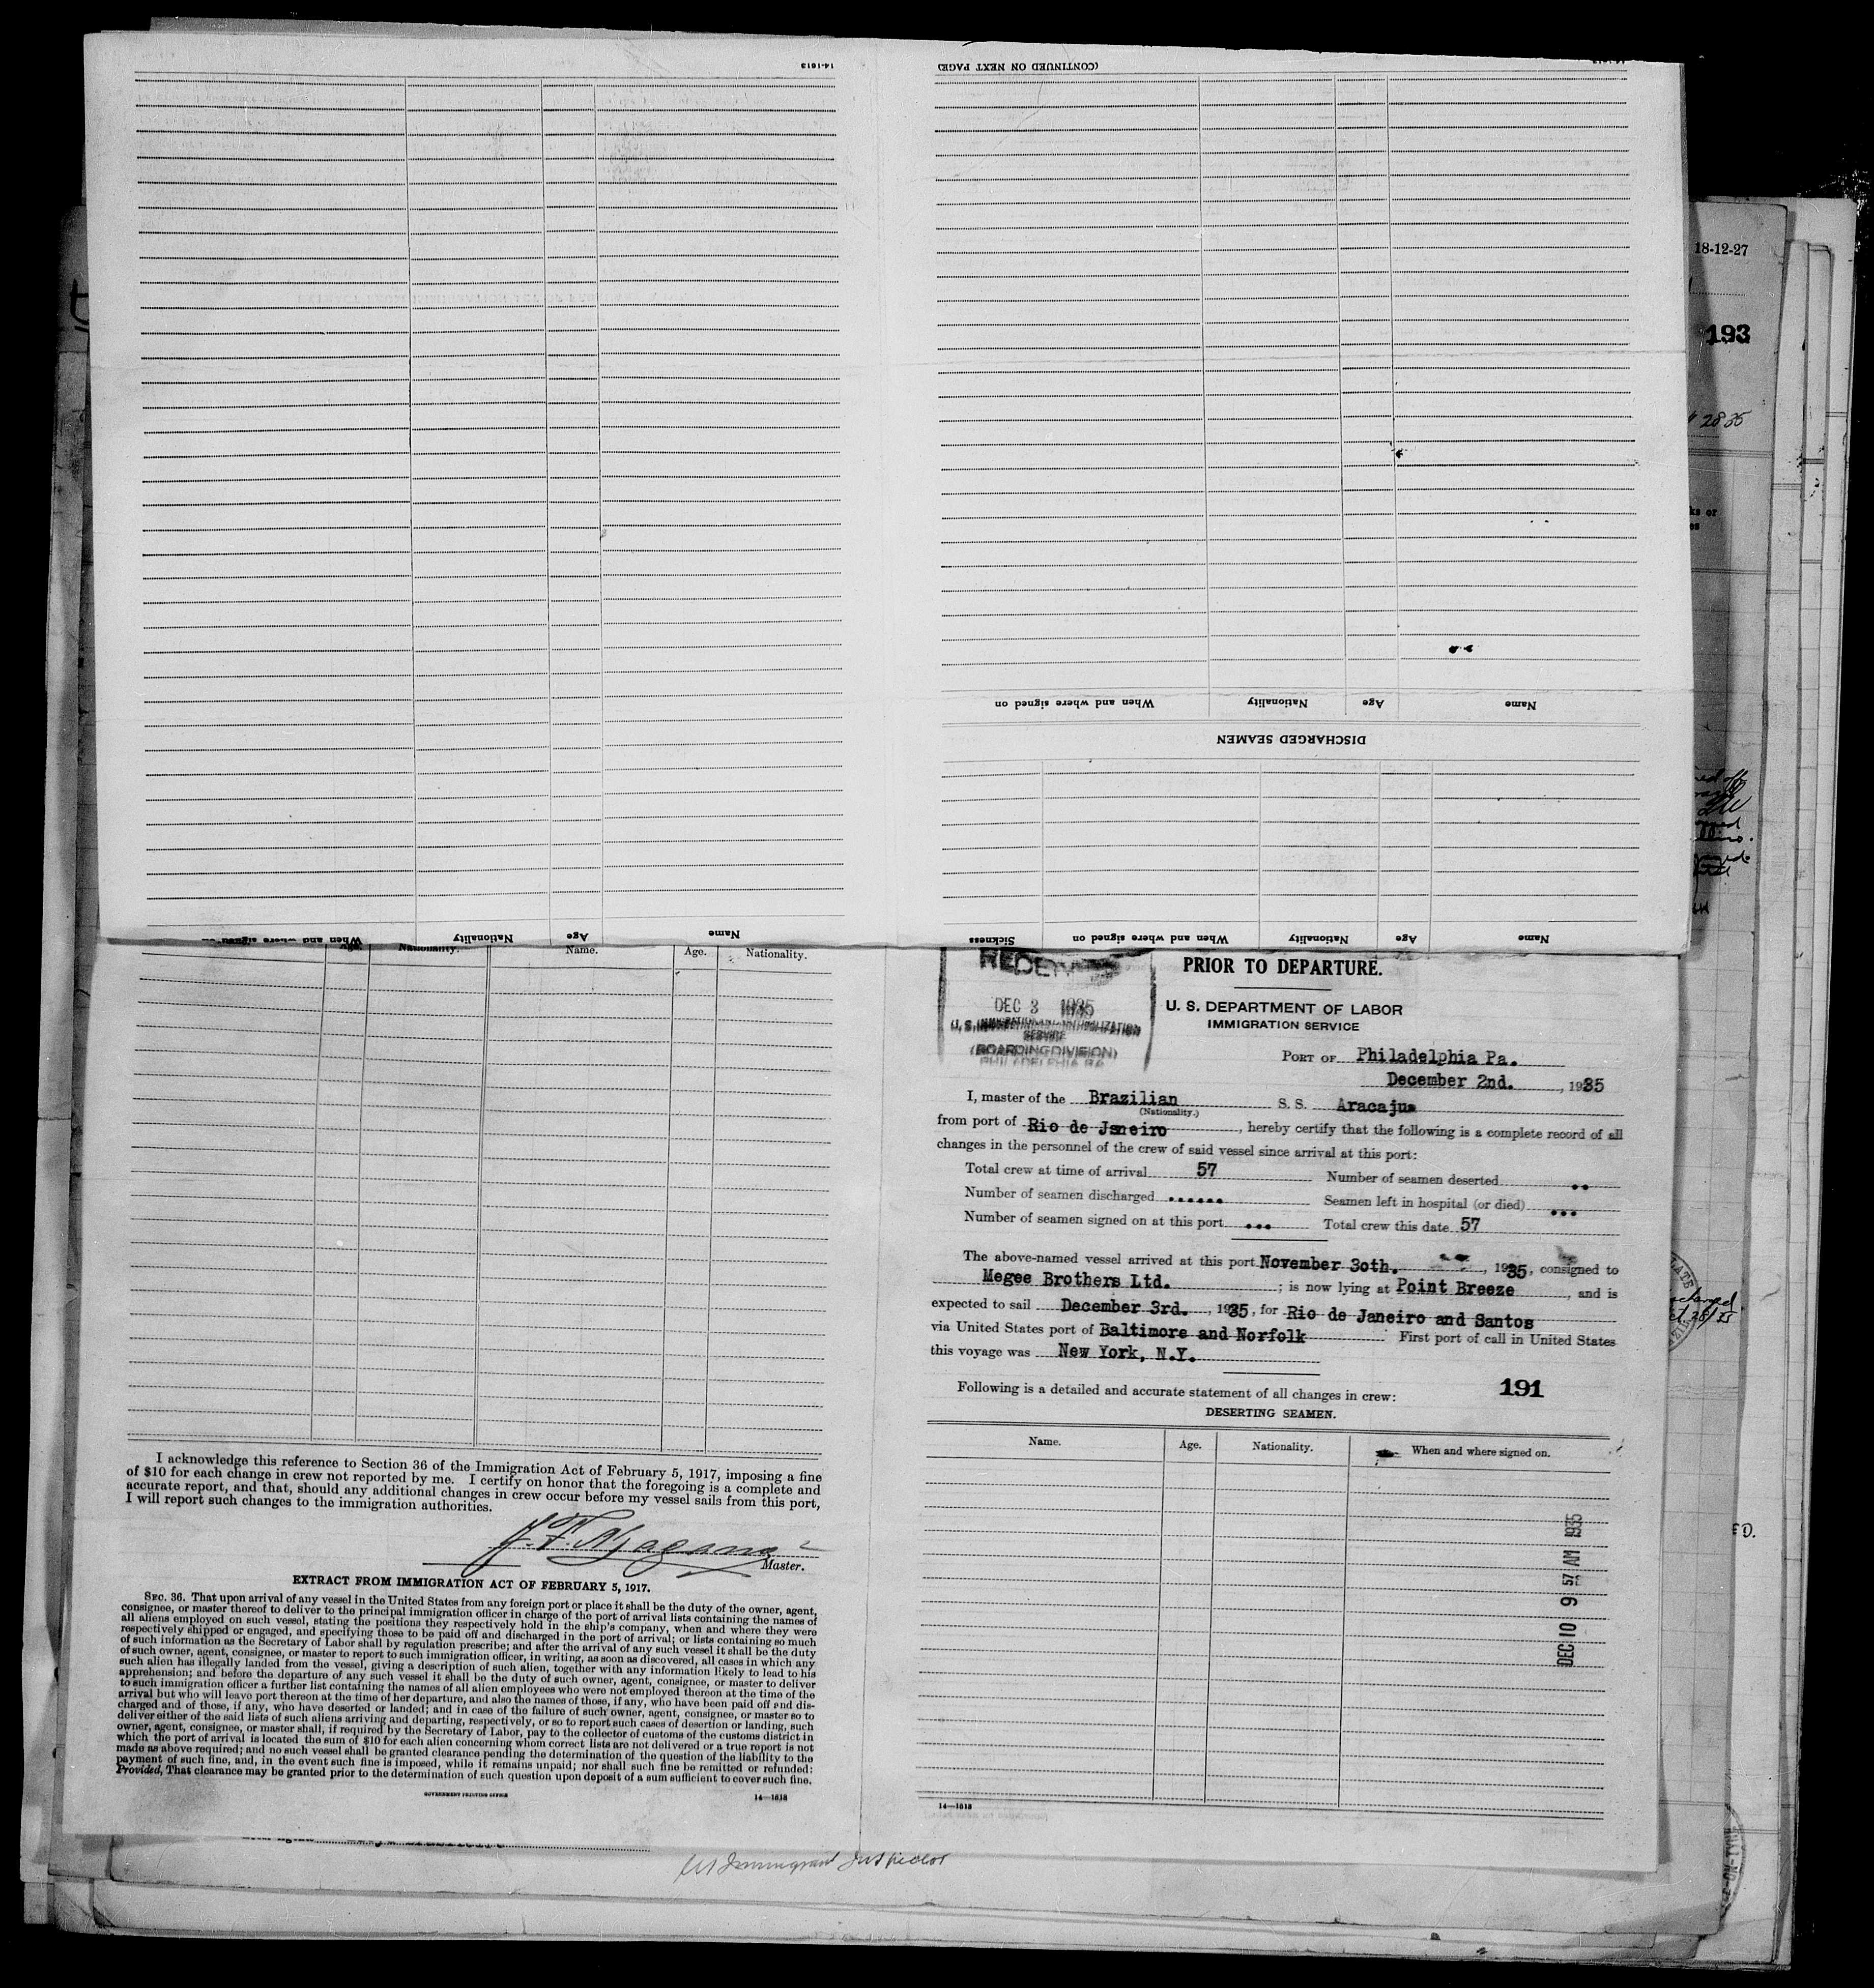 14-1613
(CONTINUED ON NEXT PAGE)
18-12-27
193
2835
When and where signed on Nationality Age Name
DISCHARGED SEAMEN
Sickness When and where signed on Nationality Age Name
When and where signed on Nationality Age Name
Age. Nationality. Name. Age. Nationality.
PRIOR TO DEPARTURE.
DEC 3 1935
U. S. IMMIGRATION AND NATURALIZATION
SERVICE
(BOARDING DIVISION)
PHILADELPHIA PA
U. S. DEPARTMENT OF LABOR
IMMIGRATION SERVICE
PORT OF Philadelphia Pa.
December 2nd. , 1935
I, master of the Brazilian S. S. Aracaju
(Nationality.)
from port of Rio de Janeiro , hereby certify that the following is a complete record of all
changes in the personnel of the crew of said vessel since arrival at this port:
Total crew at time of arrival 57 Number of seamen deserted ..
Number of seamen discharged ...... Seamen left in hospital (or died) ...
Number of seamen signed on at this port ... Total crew this date 57
The above-named vessel arrived at this port November 30th. , 1935, consigned to
Megee Brothers Ltd. ; is now lying at Point Breeze , and is
expected to sail December 3rd. , 1935, for Rio de Janeiro and Santos
via United States port of Baltimore and Norfolk First port of call in United States
this voyage was New York, N.Y.
Following is a detailed and accurate statement of all changes in crew: 191
DESERTING SEAMEN.
Name. Age. Nationality. When and where signed on.
DEC 10 9 57 AM 1935
14—1613
I acknowledge this reference to Section 36 of the Immigration Act of February 5, 1917, imposing a fine
of $10 for each change in crew not reported by me. I certify on honor that the foregoing is a complete and
accurate report, and that, should any additional changes in crew occur before my vessel sails from this port,
I will report such changes to the immigration authorities.
Master.
EXTRACT FROM IMMIGRATION ACT OF FEBRUARY 5, 1917.
SEC. 36. That upon arrival of any vessel in the United States from any foreign port or place it shall be the duty of the owner, agent,
consignee, or master thereof to deliver to the principal immigration officer in charge of the port of arrival lists containing the names of
all aliens employed on such vessel, stating the positions they respectively hold in the ship's company, when and where they were
respectively shipped or engaged, and specifying those to be paid off and discharged in the port of arrival; or lists containing so much
of such information as the Secretary of Labor shall by regulation prescribe; and after the arrival of any such vessel it shall be the duty
of such owner, agent, consignee, or master to report to such immigration officer, in writing, as soon as discovered, all cases in which any
such alien has illegally landed from the vessel, giving a description of such alien, together with any information likely to lead to his
apprehension; and before the departure of any such vessel it shall be the duty of such owner, agent, consignee, or master to deliver
to such immigration officer a further list containing the names of all alien employees who were not employed thereon at the time of the
arrival but who will leave port thereon at the time of her departure, and also the names of those, if any, who have been paid off and dis-
charged and of those, if any, who have deserted or landed; and in case of the failure of such owner, agent, consignee, or master so to
deliver either of the said lists of such aliens arriving and departing, respectively, or so to report such cases of desertion or landing, such
owner, agent, consignee, or master shall, if required by the Secretary of Labor, pay to the collector of customs of the customs district in
which the port of arrival is located the sum of $10 for each alien concerning whom correct lists are not delivered or a true report is not
made as above required; and no such vessel shall be granted clearance pending the determination of the question of the liability to the
payment of such fine, and, in the event such fine is imposed, while it remains unpaid; nor shall such fine be remitted or refunded:
Provided, That clearance may be granted prior to the determination of such question upon deposit of a sum sufficient to cover such fine.
GOVERNMENT PRINTING OFFICE 14—1613
Immigrant Inspector